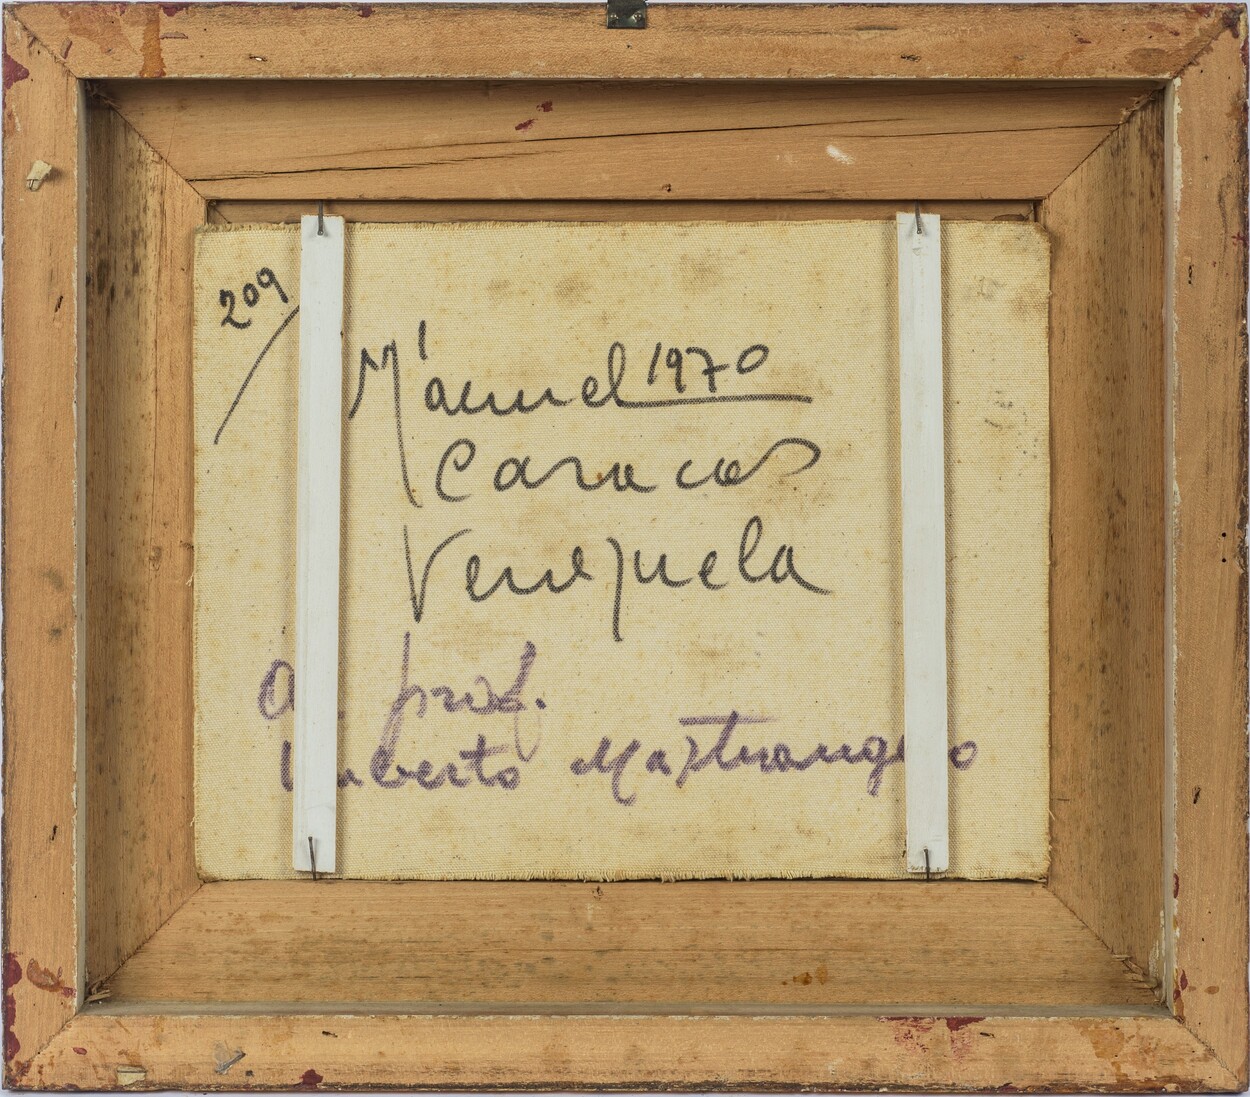 209
Manuel 1970
Caracas
Venezuela
prof.
Umberto Mastrangelo